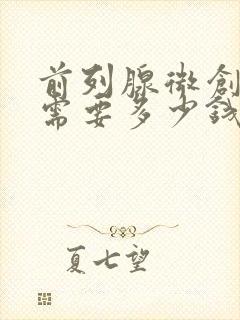 前列腺微创
需要多少钱
夏七望